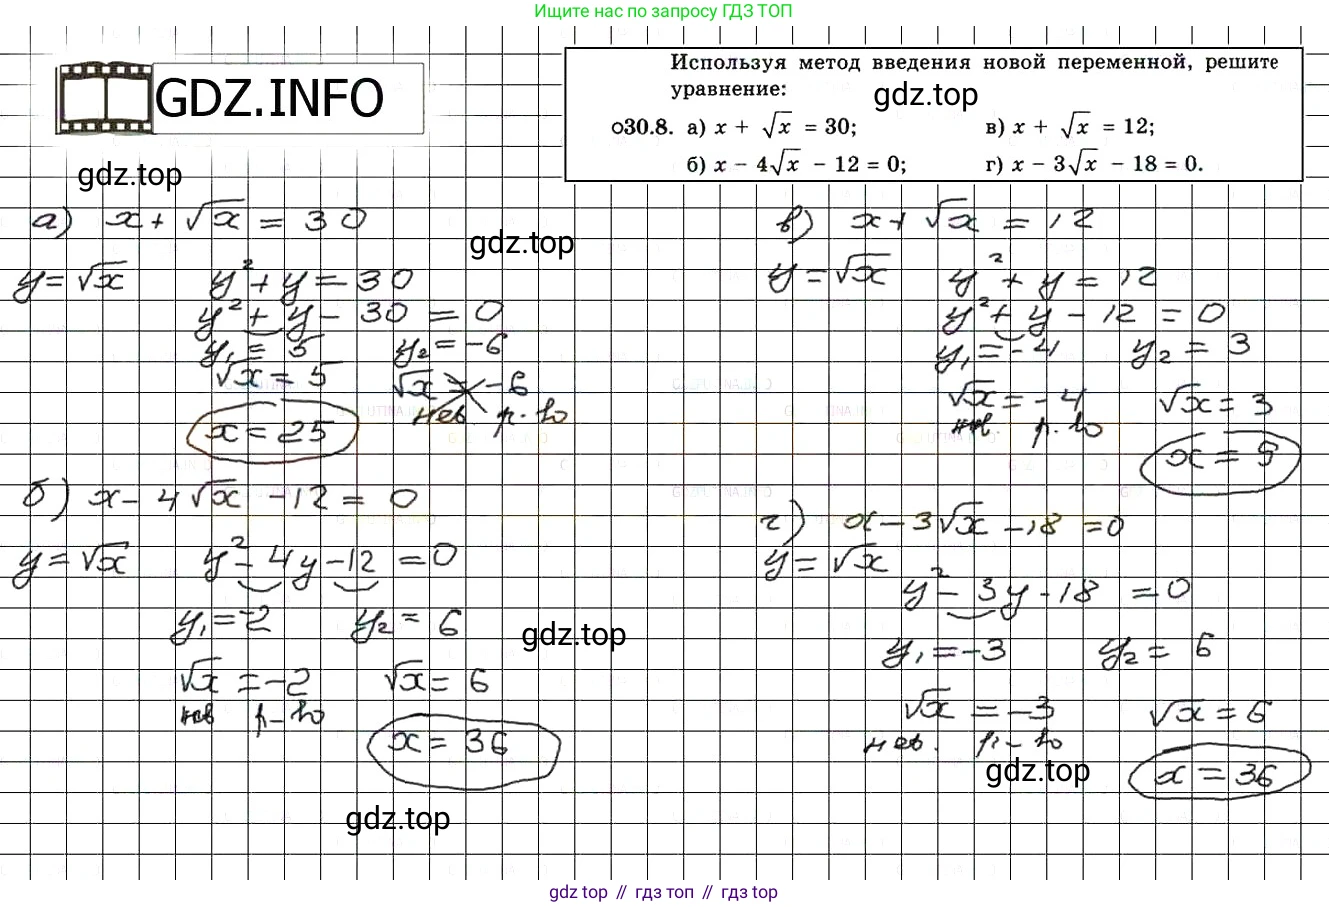 Ищите нас по запросу ГДЗ ТОП
GDZ.INFO
Используя метод введения новой переменной, решите
уравнение:
gdz.top
о30.8. а) x + √x = 30;
в) x + √x = 12;
б) x − 4√x − 12 = 0;
г) x − 3√x − 18 = 0.
gdz.top
а) x + √x = 30
gdz.top
y = √x y² + y = 30
y² + y − 30 = 0
y₁ = 5 y₂ = −6
√x = 5 √x = −6
нев. р-во
x = 25
б) x − 4√x − 12 = 0
y = √x y² − 4y − 12 = 0
y₁ = −2 y₂ = 6
gdz.top
√x = −2 √x = 6
нев р-во
x = 36
gdz.top
в) x + √x = 12
y = √x y² + y = 12
y² + y − 12 = 0
y₁ = −4 y₂ = 3
√x = −4 √x = 3
нев. р-во
x = 9
г) x − 3√x − 18 = 0
y = √x
y² − 3y − 18 = 0
y₁ = −3 y₂ = 6
√x = −3 √x = 6
нев. р-во
gdz.top
x = 36
gdz top // гдз топ // гдз top